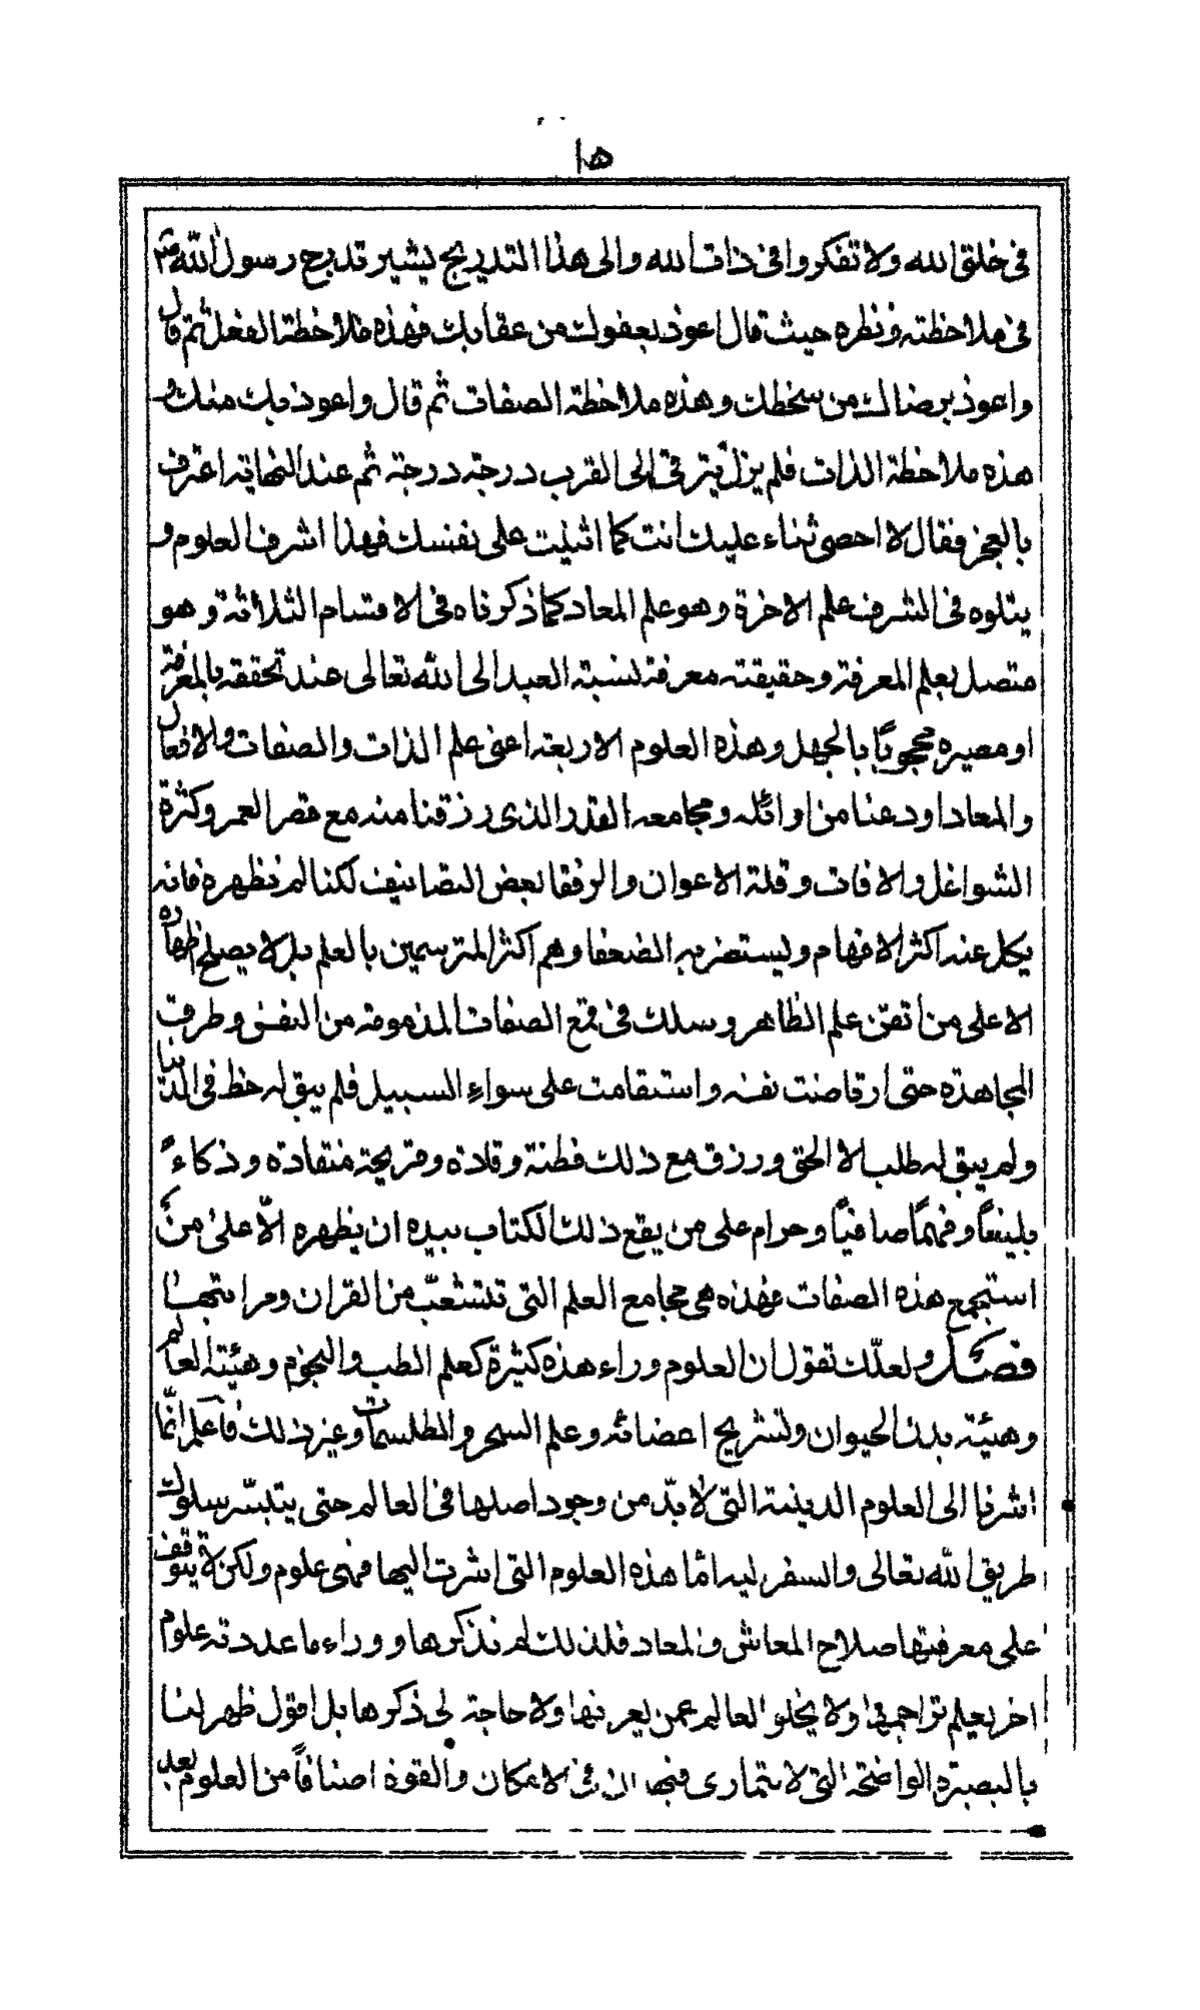 ١٥
في خلق الله ولا تفكروا في ذات الله والى هذا التدريج يشير تدرج رسول الله ص
في ملاحظته ونظره حيث قال اعوذ بعفوك من عقابك فهذه ملاحظة الفعل ثم قال
واعوذ برضاك من سخطك وهذه ملاحظة الصفات ثم قال واعوذ بك منك و
هذه ملاحظة الذات فلم يزل يترقى الى القرب درجة درجة ثم عند النهاية اعترف
بالعجز فقال لا احصى ثناء عليك انت كما اثنيت على نفسك فهذا اشرف العلوم و
يتلوه في الشرف علم الاخرة وهو علم المعاد كما ذكرناه في الاقسام الثلاثة وهو
متصل بعلم المعرفة وحقيقته معرفة نسبة العبد الى الله تعالى عند تحققه بالمعرفة
او مصيره محجوبًا بالجهل وهذه العلوم الاربعة اعني علم الذات والصفات والافعال
والمعاد اودعنا من اوائله ومجامعه القدر الذى رزقنا منه مع قصر العمر وكثرة
الشواغل والافات وقلة الاعوان والرفقا بعض التصانيف لكنا لم نظهره فانه
يكل عنه اكثر الافهام ويستضر به الضعفا وهم اكثر المترسمين بالعلم بل لا يصلح اظهاره
الا على من اتقن علم الظاهر وسلك في قمع الصفات المذمومة من النفس وطرق
المجاهدة حتى ارتاضت نفسه واستقامت على سواء السبيل فلم يبق له حظ في الدنيا
ولم يبق له طلب الا الحق ورزق مع ذلك فطنة وقادة وقريحة منقادة وذكاءً
بليغًا وفهمًا صافيًا وحرام على من يقع ذلك الكتاب بيده ان يظهره الّا على من
استجمع هذه الصفات فهذه هي مجامع العلم التي تتشعّب من القران ومراتبها
فصل ولعلّك تقول ان العلوم وراء هذه كثيرة كعلم الطب والنجوم وهيئة العالم
وهيئة بدن الحيوان وتشريح اعضائه وعلم السحر والطلسمات وغير ذلك فاعلم انّما
اشرنا الى العلوم الدينية التي لا بدّ من وجود اصلها في العالم حتى يتيسّر سلوك
طريق الله تعالى والسفر اليه امّا هذه العلوم التي اشرت اليها فهي علوم ولكن لا يتوقف
على معرفتها صلاح المعاش والمعاد فلذلك لم نذكرها ووراء ما عددته علوم
اخر يعلم تراجمها ولا يخلو العالم عمن يعرفها ولا حاجة الى ذكرها بل اقول ظهر لنا
بالبصيرة الواضحة التي لا يتمارى فيها ان في الامكان والقوة اصنافًا من العلوم بعد